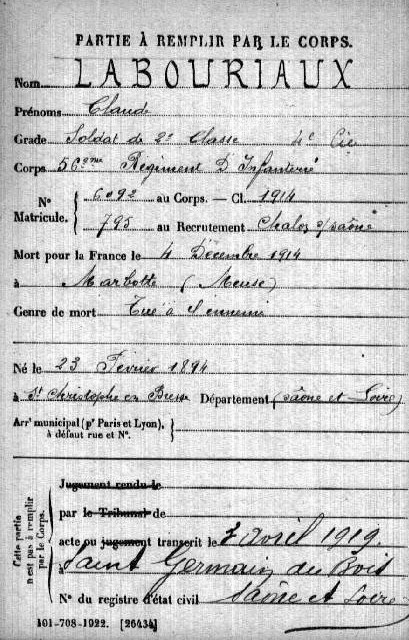 PARTIE À REMPLIR PAR LE CORPS.
Nom LABOURIAUX
Prénoms Claude
Grade Soldat de 2e Classe 4e Cie
Corps 56ème Régiment D'Infanterie
N° Matricule. { 6092 au Corps. — Cl. 1914
795 au Recrutement Chalon s/saône
Mort pour la France le 4 Décembre 1914
à Marbotte (Meuse)
Genre de mort Tué à l'ennemi
Né le 23 Février 1894
à St Christophe en Bresse Département (Saône et Loire)
Arrt municipal (pr Paris et Lyon), à défaut rue et N°. }
Cette partie n'est pas à remplir par le Corps.
Jugement rendu le
par le Tribunal de
acte ou jugement transcrit le 3 Avril 1919.
à Saint Germain du Bois
N° du registre d'état civil Saône et Loire
101-708-1922. [26434]